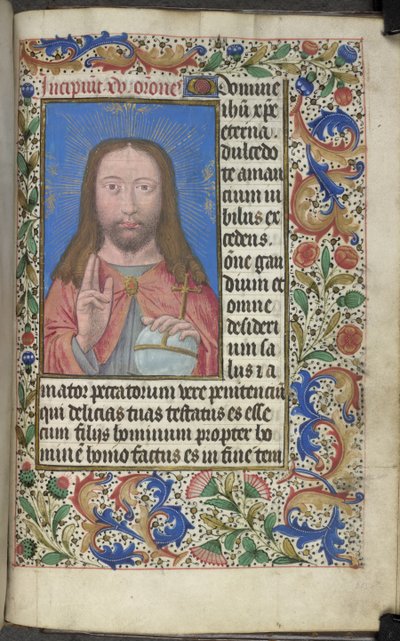 Incipiut xv oröne
O Domine
ihū xpē
eterna
dulcedo
te aman
cium iu
bilus ex
cedens.
Oēe gau
dium et
omne
desideri
um sa
lus ⁊ a
mator peccatorum vere penitenciū
qui delicias tuas testatus es esse
cum filijs hominum propter ho
minē homo factus es in fine tem